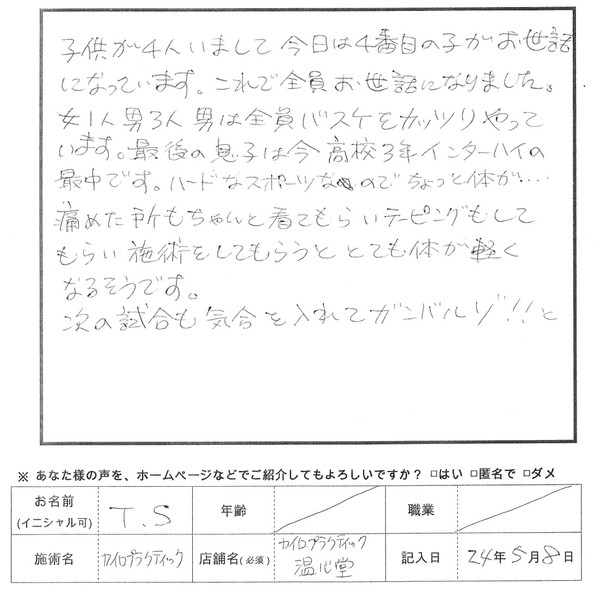 子供が4人いまして今日は4番目の子がお世話
になっています。これで全員お世話になりました。
女1人男3人男は全員バスケをガッツリやって
います。最後の息子は今高校3年インターハイの
最中です。ハードなスポーツなのでちょっと体が‥‥
痛めた所もちゃんと看てもらいテーピングもして
もらい施術をしてもらうととても体が軽く
なるそうです。
次の試合も気合を入れてガンバルゾ!!と
※ あなた様の声を、ホームページなどでご紹介してもよろしいですか? □はい □匿名で □ダメ
お名前 (イニシャル可) T.S 年齢 職業
施術名 カイロプラクティック 店舗名(必須) カイロプラクティック 温心堂 記入日 24年5月8日